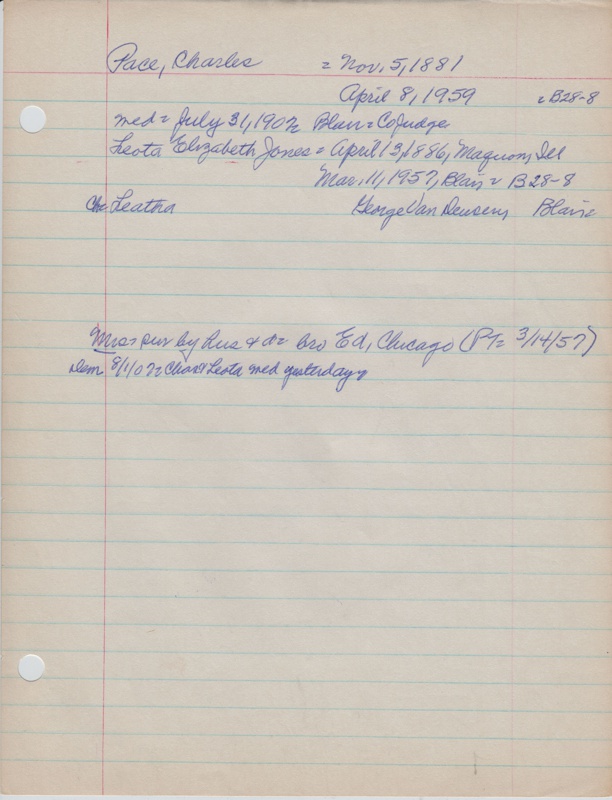 Pace, Charles = Nov. 5, 1881
April 8, 1959 = B28-8
med = July 31, 1907 = Blair = Co Judge
Leota Elizabeth Jones = April 13, 1886, Maquon, Ill
Mar. 11, 1957, Blair = B28-8
Ch = Leatha George Van Deusen, Blair
Mrs = sur by hus & d = bro Ed, Chicago (PT = 3/14/57)
Dem 8/1/07 = Chas & Leota med yesterday